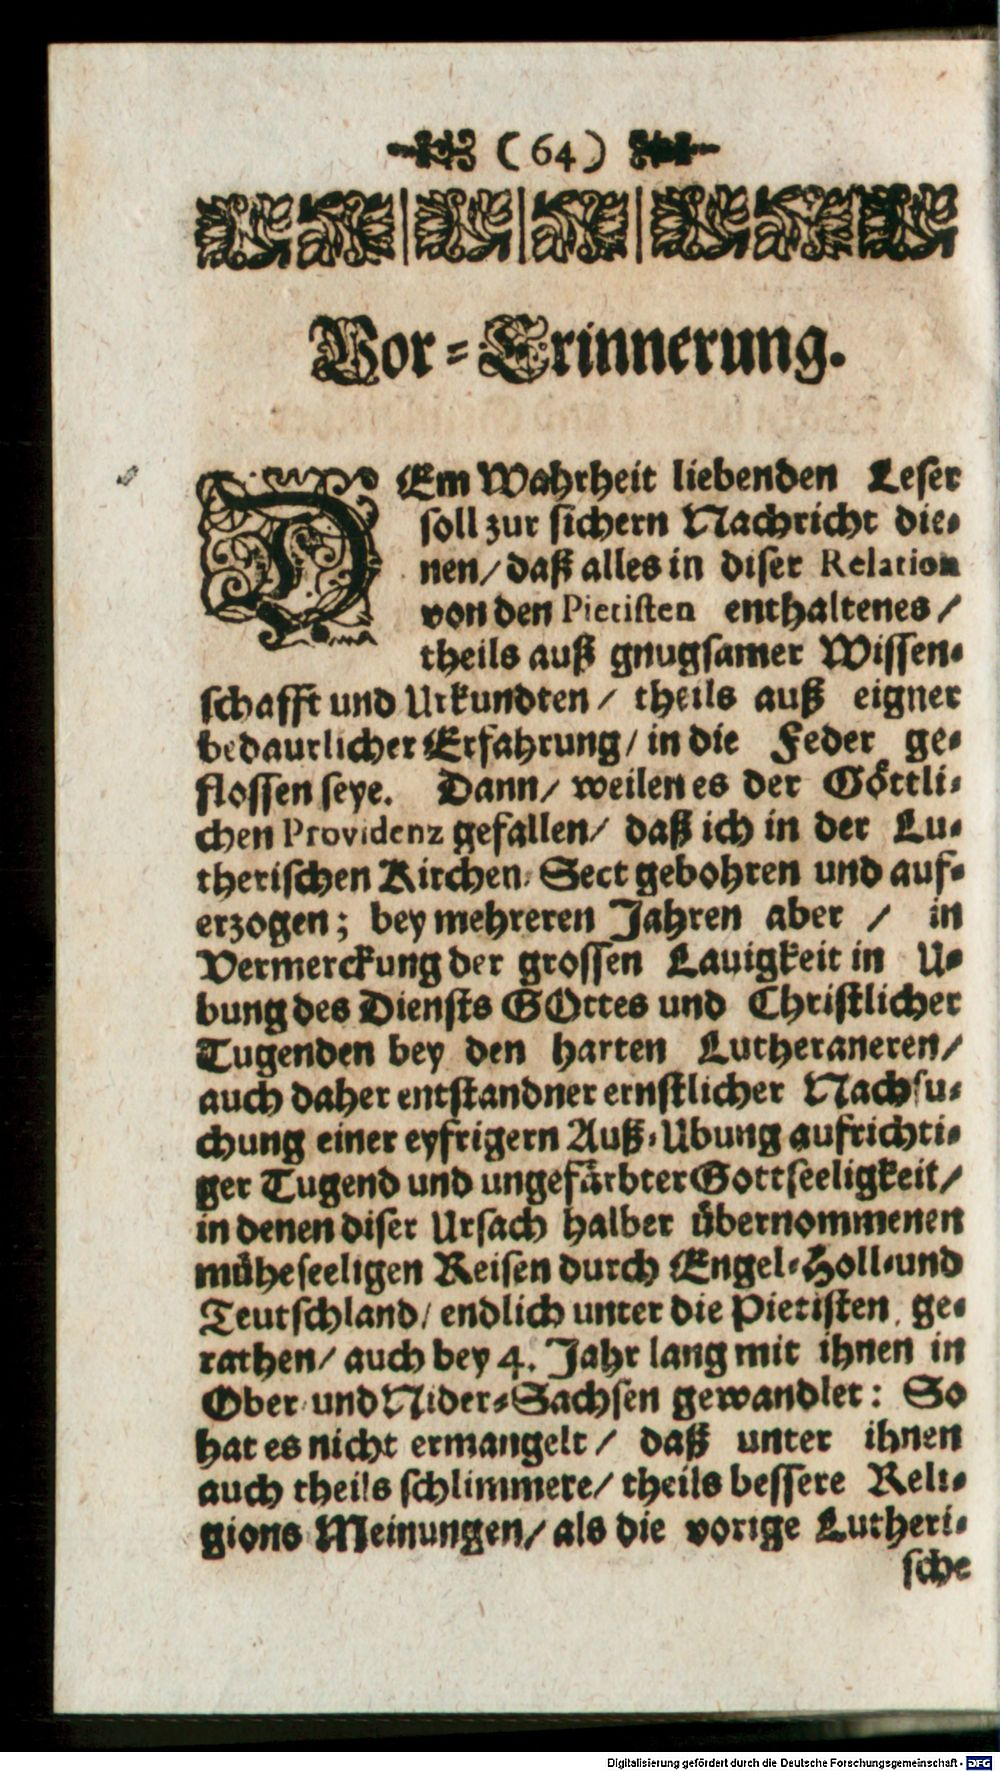 (64)
Vor-Erinnerung.
DEm Wahrheit liebenden Leser
soll zur sichern Nachricht die-
nen/ daß alles in diser Relation
von den Pietisten enthaltenes/
theils auß gnugsamer Wissen-
schafft und Urkundten/ theils auß eigner
bedaurlicher Erfahrung/ in die Feder ge-
flossen seye. Dann/ weilen es der Göttli-
chen Providenz gefallen/ daß ich in der Lu-
therischen Kirchen-Sect gebohren und auf-
erzogen; bey mehreren Jahren aber / in
Vermerckung der grossen Lauigkeit in U-
bung des Diensts GOttes und Christlicher
Tugenden bey den harten Lutheraneren/
auch daher entstandner ernstlicher Nachsu-
chung einer eyfrigern Auß-Ubung aufrichti-
ger Tugend und ungefärbter Gottseeligkeit/
in denen diser Ursach halber übernommenen
müheseeligen Reisen durch Engel-Holl-und
Teutschland/ endlich unter die Pietisten ge-
rathen/ auch bey 4. Jahr lang mit ihnen in
Ober-und Nider-Sachsen gewandlet: So
hat es nicht ermangelt/ daß unter ihnen
auch theils schlimmere/ theils bessere Reli-
gions Meinungen/ als die vorige Lutheri-
sche
Digitalisierung gefördert durch die Deutsche Forschungsgemeinschaft - DFG